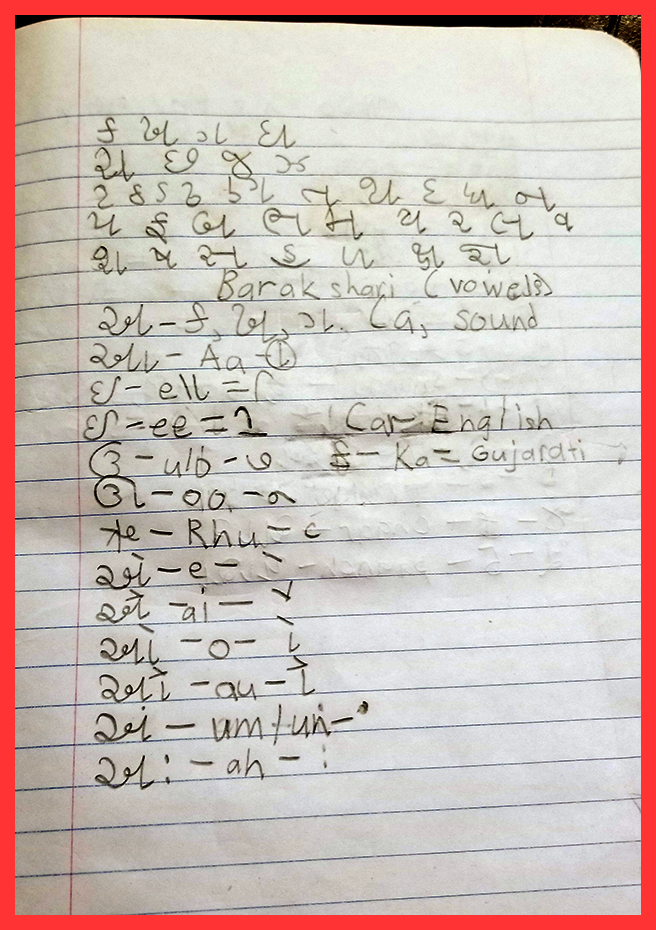 ક ખ ગ ઘ
ચ છ જ ઝ
ટ ઠ ડ ઢ ણ ત થ દ ધ ન
પ ફ બ ભ મ ય ર લ વ
શ ષ સ હ ળ ક્ષ જ્ઞ
Barakshari (vowels)
અ - ક, ખ, ગ. (a, sound
આ - Aa - ા
ઇ - = િ
ઈ = ee = ી Car - English
ઉ - u - ુ ક - Ka = Gujarati
ઊ - oo - ૂ
ઋ - Rhu - ૃ
એ - e - ે
ઐ - ai - ૈ
ઓ - o - ો
ઔ - au - ૌ
અં - um/un - ં
અઃ - ah - ઃ